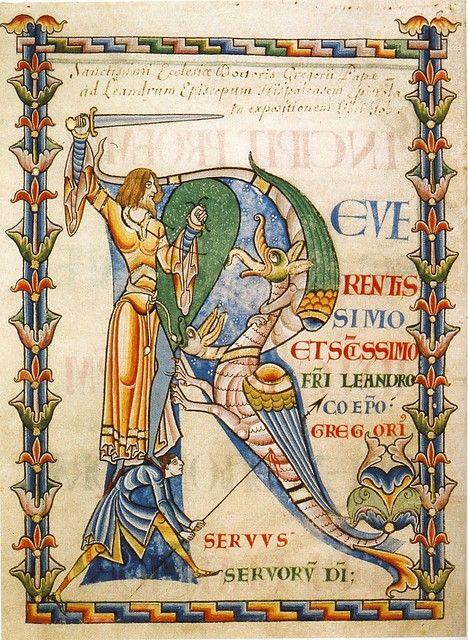 Sanctissimi Eclesiæ Doctoris Gregorii Papæ
ad Leandrum Episcopum Hispalensem
expositionem libri Iob.
REVE
RENTIS
SIMO
ET SCISSIMO
FRI LEANDRO
COEPO·
GREGORI
SERVVS
SERVORV̄ DI;